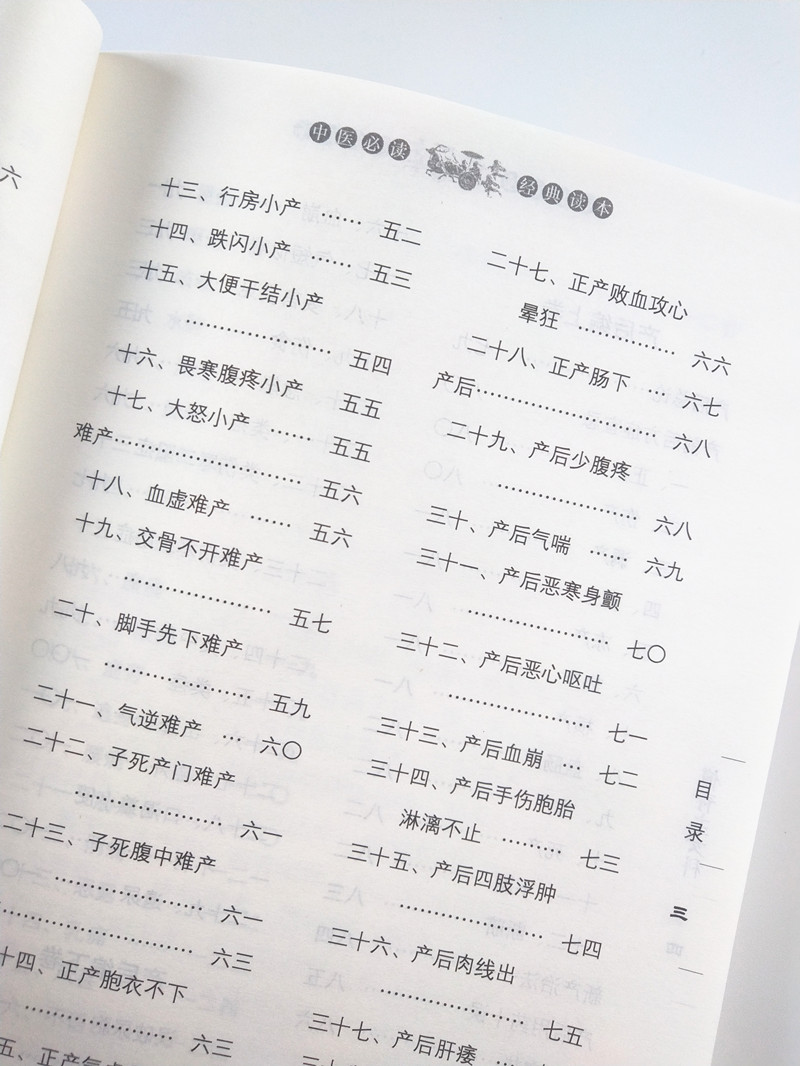 六
中医必读 经典读本
十三、行房小产 …… 五二
十四、跌闪小产 …… 五三
十五、大便干结小产
…………………… 五四
十六、畏寒腹疼小产 五五
十七、大怒小产 …… 五五
难产…………………… 五六
十八、血虚难产 …… 五六
十九、交骨不开难产
…………………… 五七
二十、脚手先下难产
…………………… 五九
二十一、气逆难产 … 六〇
二十二、子死产门难产
…………………… 六一
二十三、子死腹中难产
…………………… 六一
…………………… 六三
十四、正产胞衣不下
…………………… 六三
五、正产气
二十七、正产败血攻心
晕狂 ………… 六六
二十八、正产肠下 … 六七
产后…………………… 六八
二十九、产后少腹疼
…………………… 六八
三十、产后气喘 …… 六九
三十一、产后恶寒身颤
…………………… 七〇
三十二、产后恶心呕吐
…………………… 七一
三十三、产后血崩 … 七二
三十四、产后手伤胞胎
淋漓不止 ……… 七三
三十五、产后四肢浮肿
…………………… 七四
三十六、产后肉线出
…………………… 七五
三十七、产后肝痿 …
目录
三